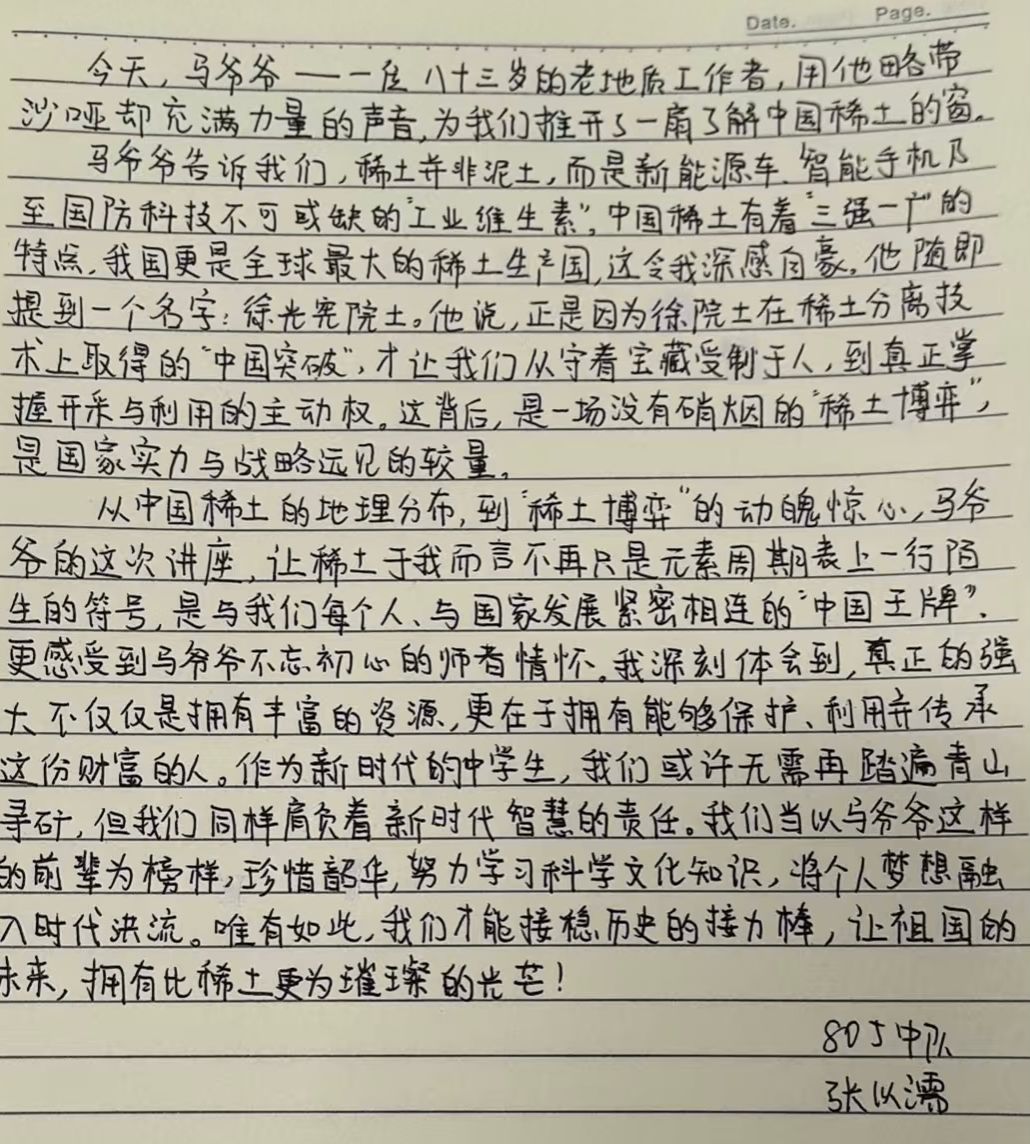 Date.
Page.
今天，马爷爷——一位八十三岁的老地质工作者，用他略带
沙哑却充满力量的声音，为我们推开了一扇了解中国稀土的窗。
马爷爷告诉我们，稀土并非泥土，而是新能源车、智能手机乃
至国防科技不可或缺的“工业维生素”。中国稀土有着“三强一广”的
特点，我国更是全球最大的稀土生产国，这令我深感自豪。他随即
提到一个名字：徐光宪院士。他说，正是因为徐院士在稀土分离技
术上取得的“中国突破”，才让我们从守着宝藏受制于人，到真正掌
握开采与利用的主动权。这背后，是一场没有硝烟的“稀土博弈”，
是国家实力与战略远见的较量。
从中国稀土的地理分布，到“稀土博弈”的动魄惊心，马爷
爷的这次讲座，让稀土于我而言不再只是元素周期表上一行陌
生的符号，是与我们每个人、与国家发展紧密相连的“中国王牌”．
更感受到马爷爷不忘初心的师者情怀。我深刻体会到，真正的强
大不仅仅是拥有丰富的资源，更在于拥有能够保护、利用并传承
这份财富的人。作为新时代的中学生，我们或许无需再踏遍青山
寻矿，但我们同样肩负着新时代智慧的责任。我们当以马爷爷这样
的前辈为榜样，珍惜韶华，努力学习科学文化知识，将个人梦想融
入时代洪流。唯有如此，我们才能接稳历史的接力棒，让祖国的
未来，拥有比稀土更为璀璨的光芒！
805中队
张以濡